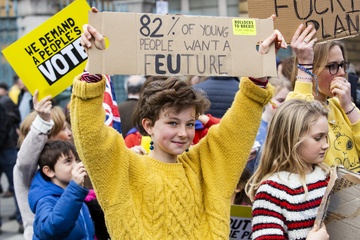 WE DEMAND
A PEOPLE'S
VOTE
82% OF YOUNG
PEOPLE WANT A
FEUTURE
BOLLOCKS
TO BREXIT
PLAN